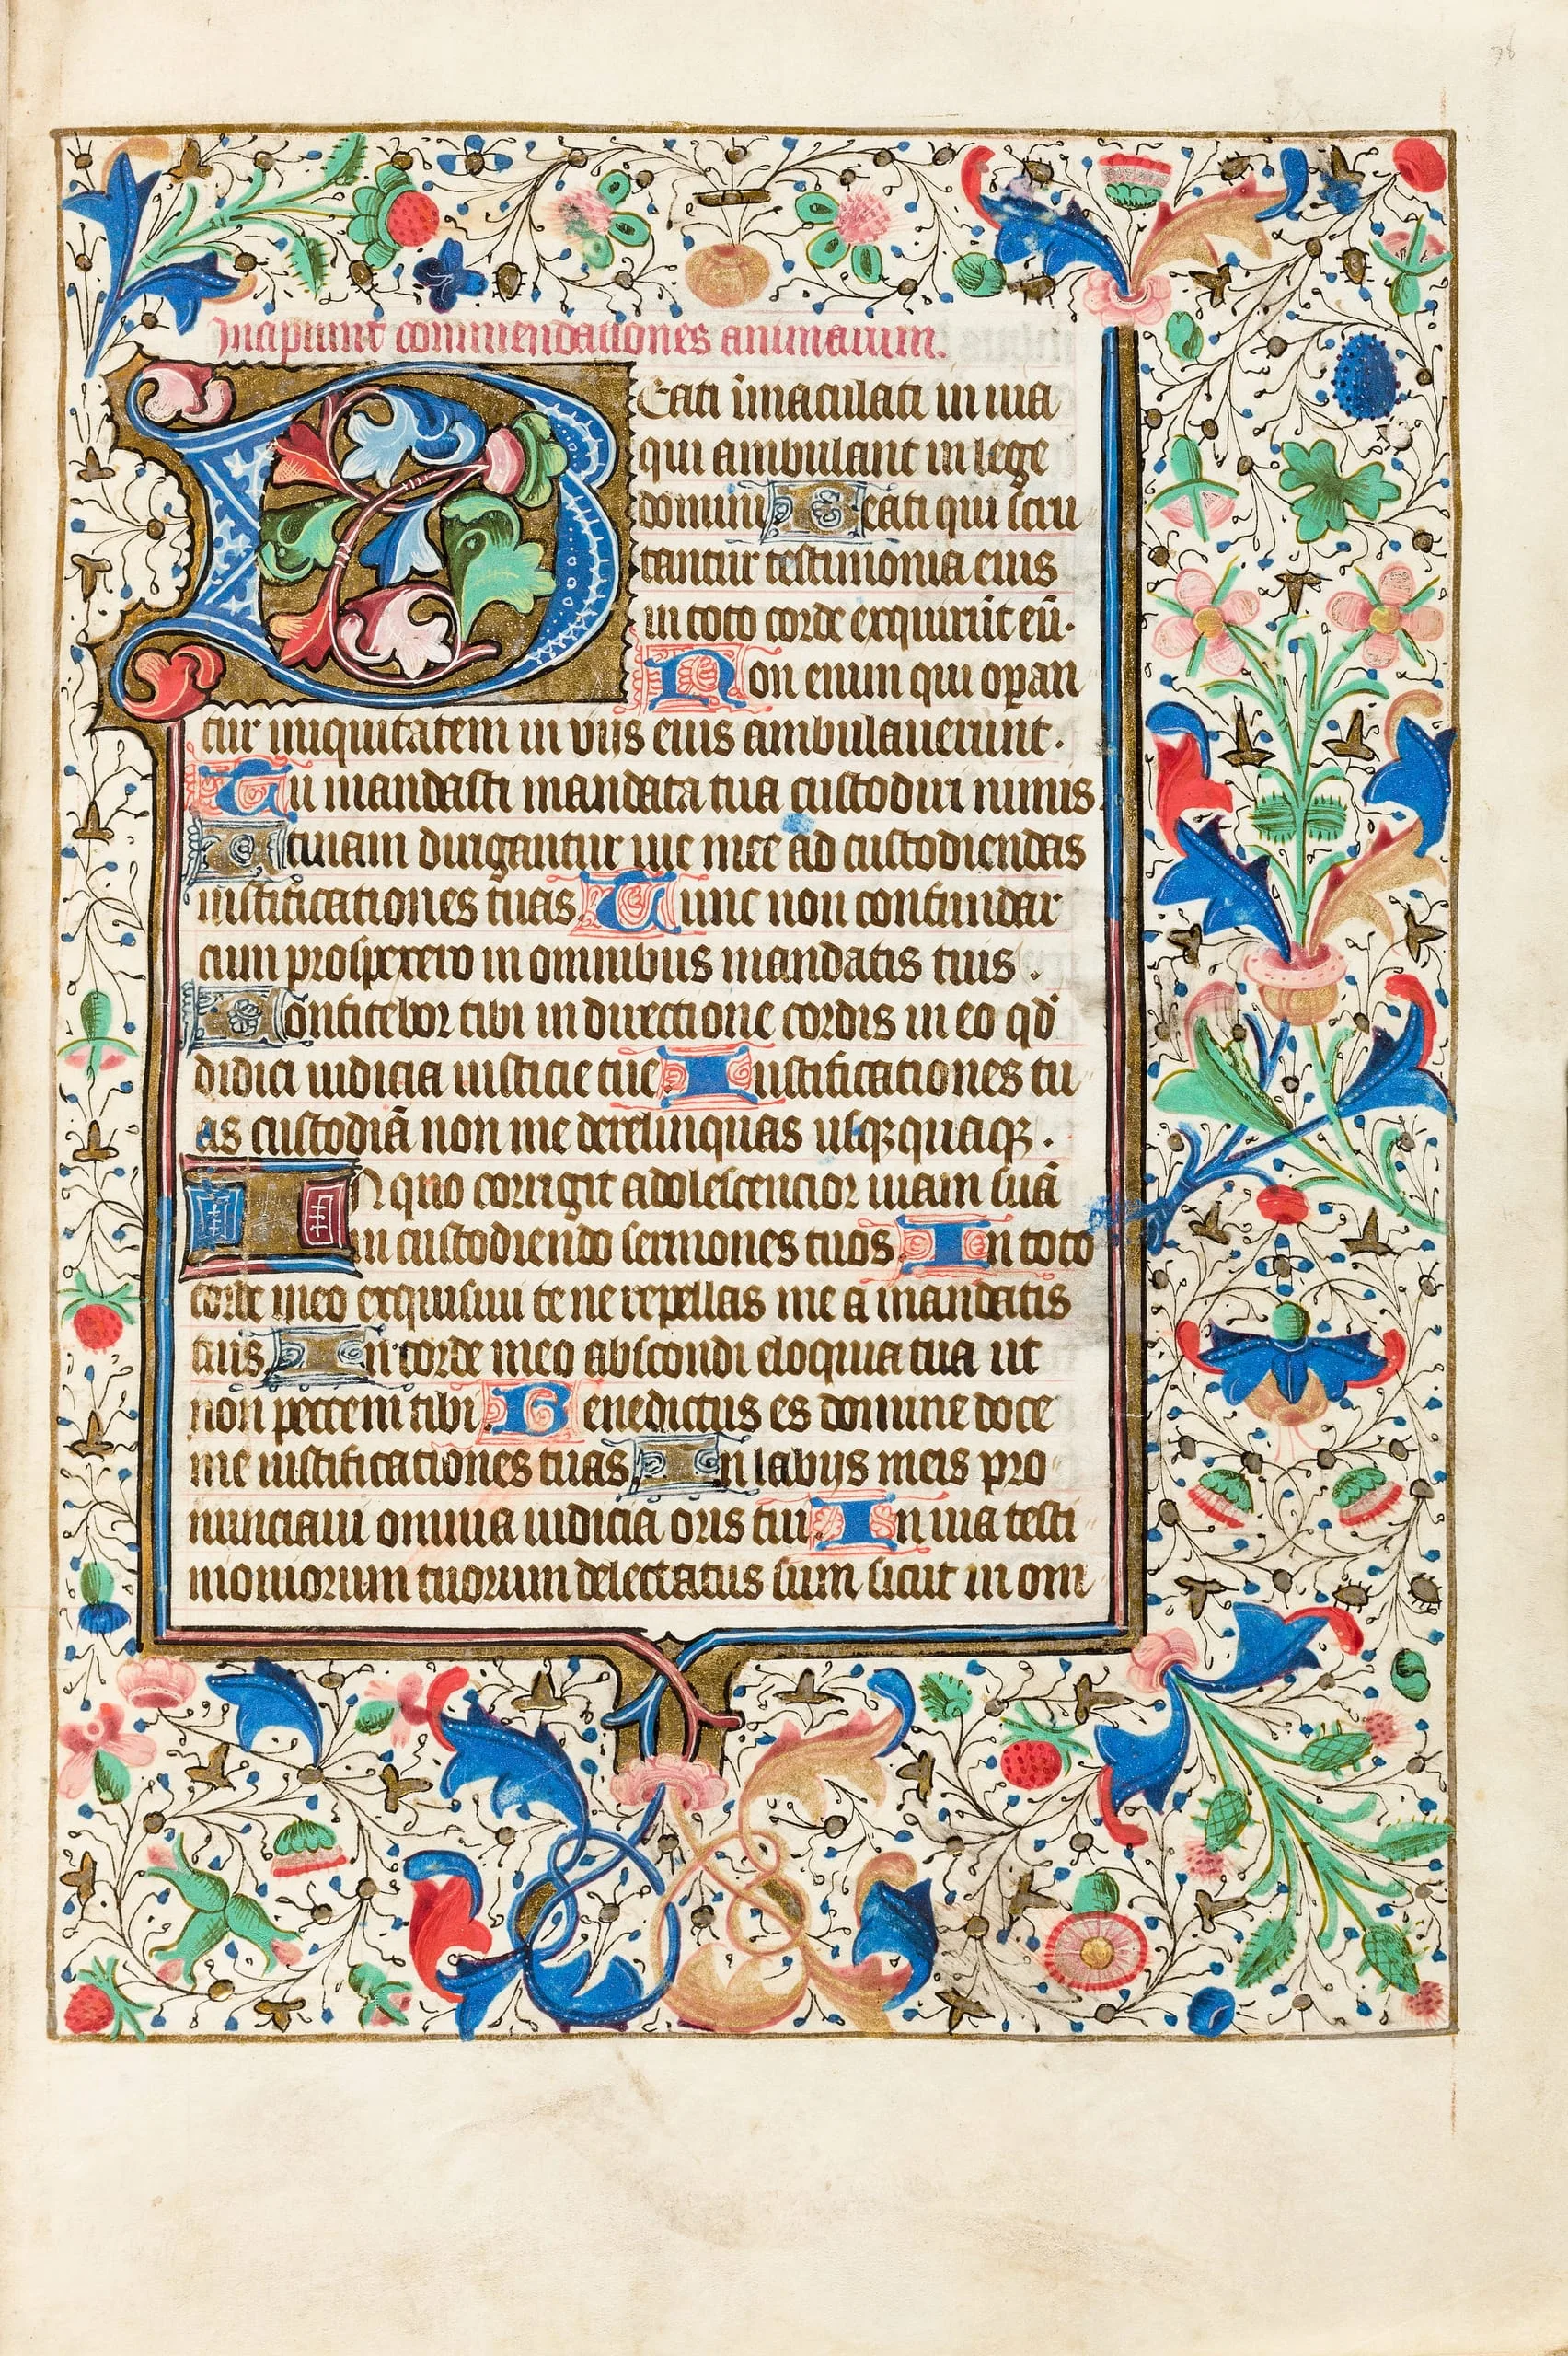 78
Incipiunt commendationes animarum.
Beati īmaculati in uia
qui ambulant in lege
domini. Beati qui scru
tantur testimonia eius
in toto corde exquirūt eū.
Non enim qui oꝑan
tur iniquitatem in viis eius ambulauerunt.
Tu mandasti mandata tua custodiri nimis.
Utinam dirigantur uie mee ad custodiendas
iustificationes tuas. Tunc non confundar
cum prospexero in omnibus mandatis tuis.
Confitebor tibi in directione cordis in eo qd̓
didici iudicia iusticie tue. Iustificationes tu
as custodiā non me derelinquas usqꝫquaqꝫ.
IN quo corrigit adolescencior uiam suā
in custodiendo sermones tuos. In toto
corde meo exquisiui te ne repellas me a mandatis
tuis. In corde meo abscondi eloquia tua ut
non peccem tibi. Benedictus es domine doce
me iustificationes tuas. In labijs meis pro
nunciaui omnia iudicia oris tui. In uia testi
moniorum tuorum delectatus sum sicut in om